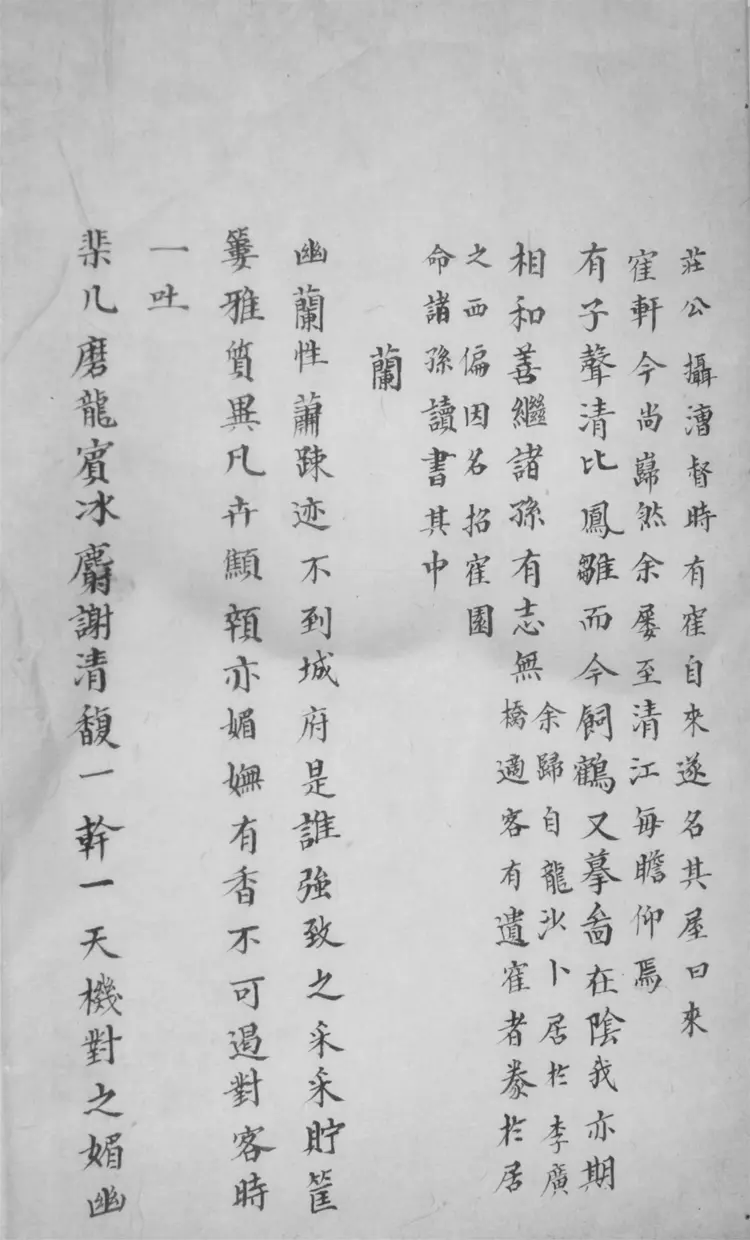 莊公攝漕督時有寉自來遂名其屋曰來
寉軒今尚巋然余屡至清江每瞻仰焉
有子聲清比鳳雛而今飼鶴又摹啚在陰我亦期
相和善繼諸孫有志無
余歸自龍沙卜居於李廣
橋適客有遺寉者豢於居
之西偏因名招寉園
命諸孫讀書其中
蘭
幽蘭性蕭踈迹不到城府是誰強致之采采貯筐
簍雅質異凡卉顛頟亦媚嫵有香不可遏對客時
一吐
棐几磨龍賓冰麝謝清馥一幹一天機對之媚幽